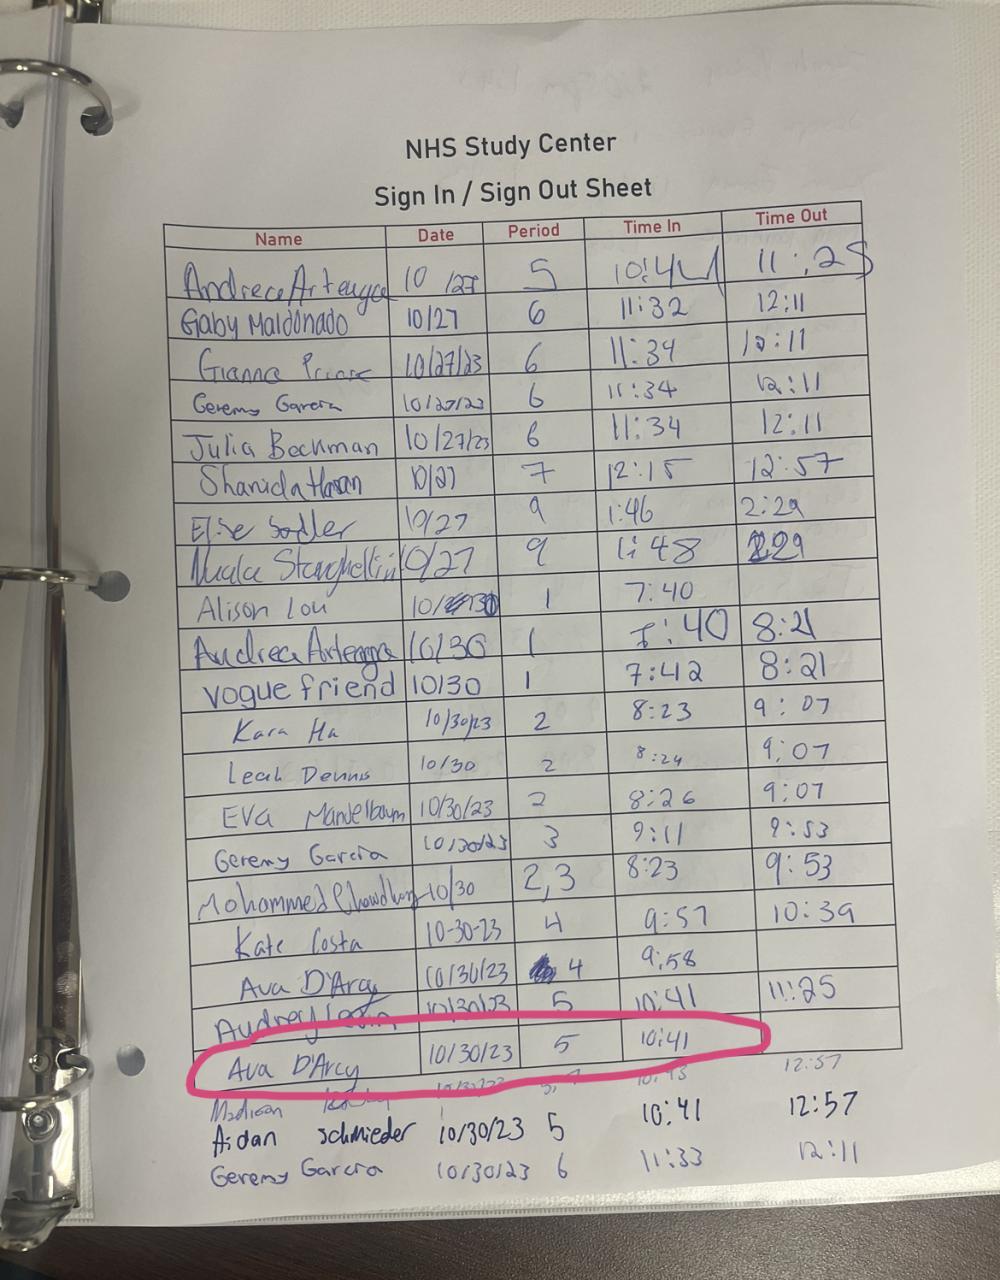 NHS Study Center
Sign In / Sign Out Sheet
Name Date Period Time In Time Out
Andrea Arteaga 10 /27 5 10:41 11:25
Gaby Maldonado 10/27 6 11:32 12:11
Gianna 10/27/23 6 11:34 12:11
Geremy Garcia 10/27/23 6 11:34 12:11
Julia Beckman 10/27/23 6 11:34 12:11
Shanida Hasan 10/27 7 12:15 12:57
Elise Sadler 10/27 9 1:46 2:29
Nuala 10/27 9 1:48 2:29
Alison Lou 10/30 1 7:40
Andrea Arteaga 10/30 1 7:40 8:21
vogue friend 10/30 1 7:42 8:21
Kara Ha 10/30/23 2 8:23 9:07
Leah Dennis 10/30 2 8:24 9:07
EVa Mandelbaum 10/30/23 2 8:26 9:07
Geremy Garcia 10/30/23 3 9:11 9:53
Mohammed Chowdhury 10/30 2,3 8:23 9:53
Kate Costa 10-30-23 4 9:57 10:39
Ava D'Arcy 10/30/23 4 9:58
Audrey 10/30/23 5 10:41 11:25
Ava D'Arcy 10/30/23 5 10:41
Madison 12:57
Aidan Schmieder 10/30/23 5 10:41 12:57
Geremy Garcia 10/30/23 6 11:33 12:11